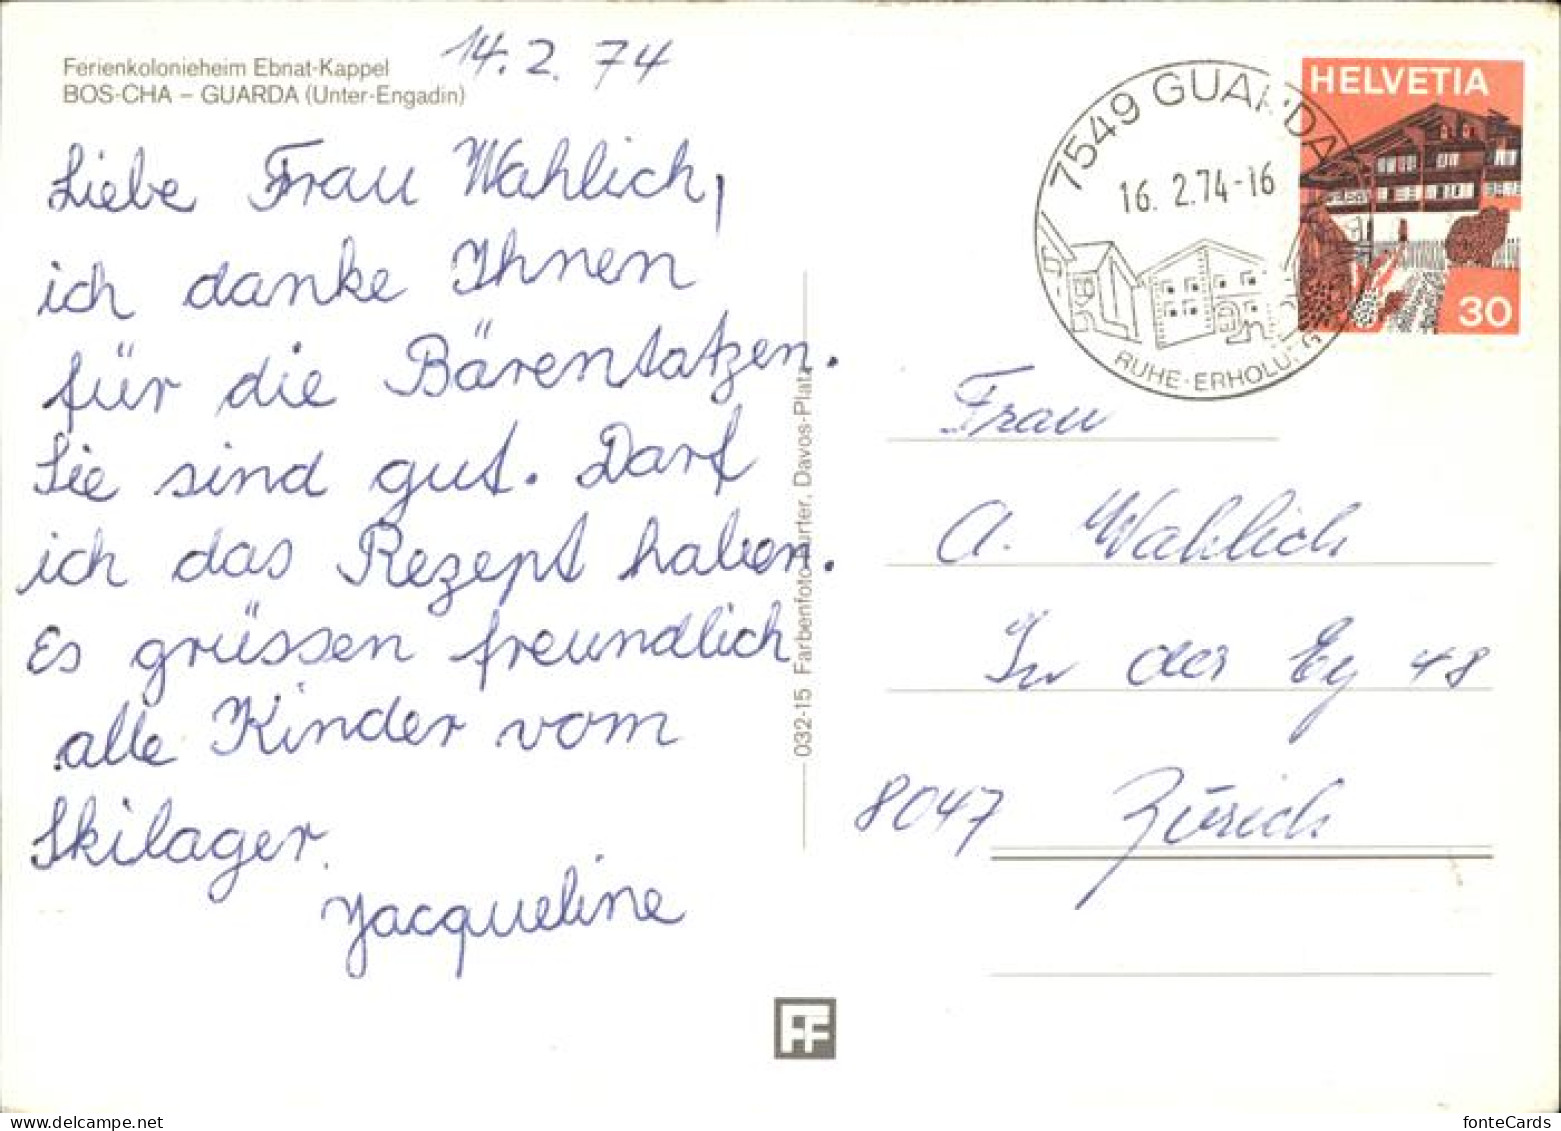 Ferienkolonieheim Ebnat-Kappel
BOS-CHA – GUARDA (Unter-Engadin)
14. 2. 74
Liebe Frau Wahlich,
ich danke Ihnen
für die Bärentatzen.
Sie sind gut. Darf
ich das Rezept haben.
Es grüssen freundlich
alle Kinder vom
Skilager.
Jacqueline
032-15 Farbenfoto Furter, Davos-Platz
7549 GUARDA
16. 2.74-16
RUHE-ERHOLUNG
HELVETIA
30
Frau
A. Wahlich
In der Ey 48
8047 Zürich
FF
fonteCards